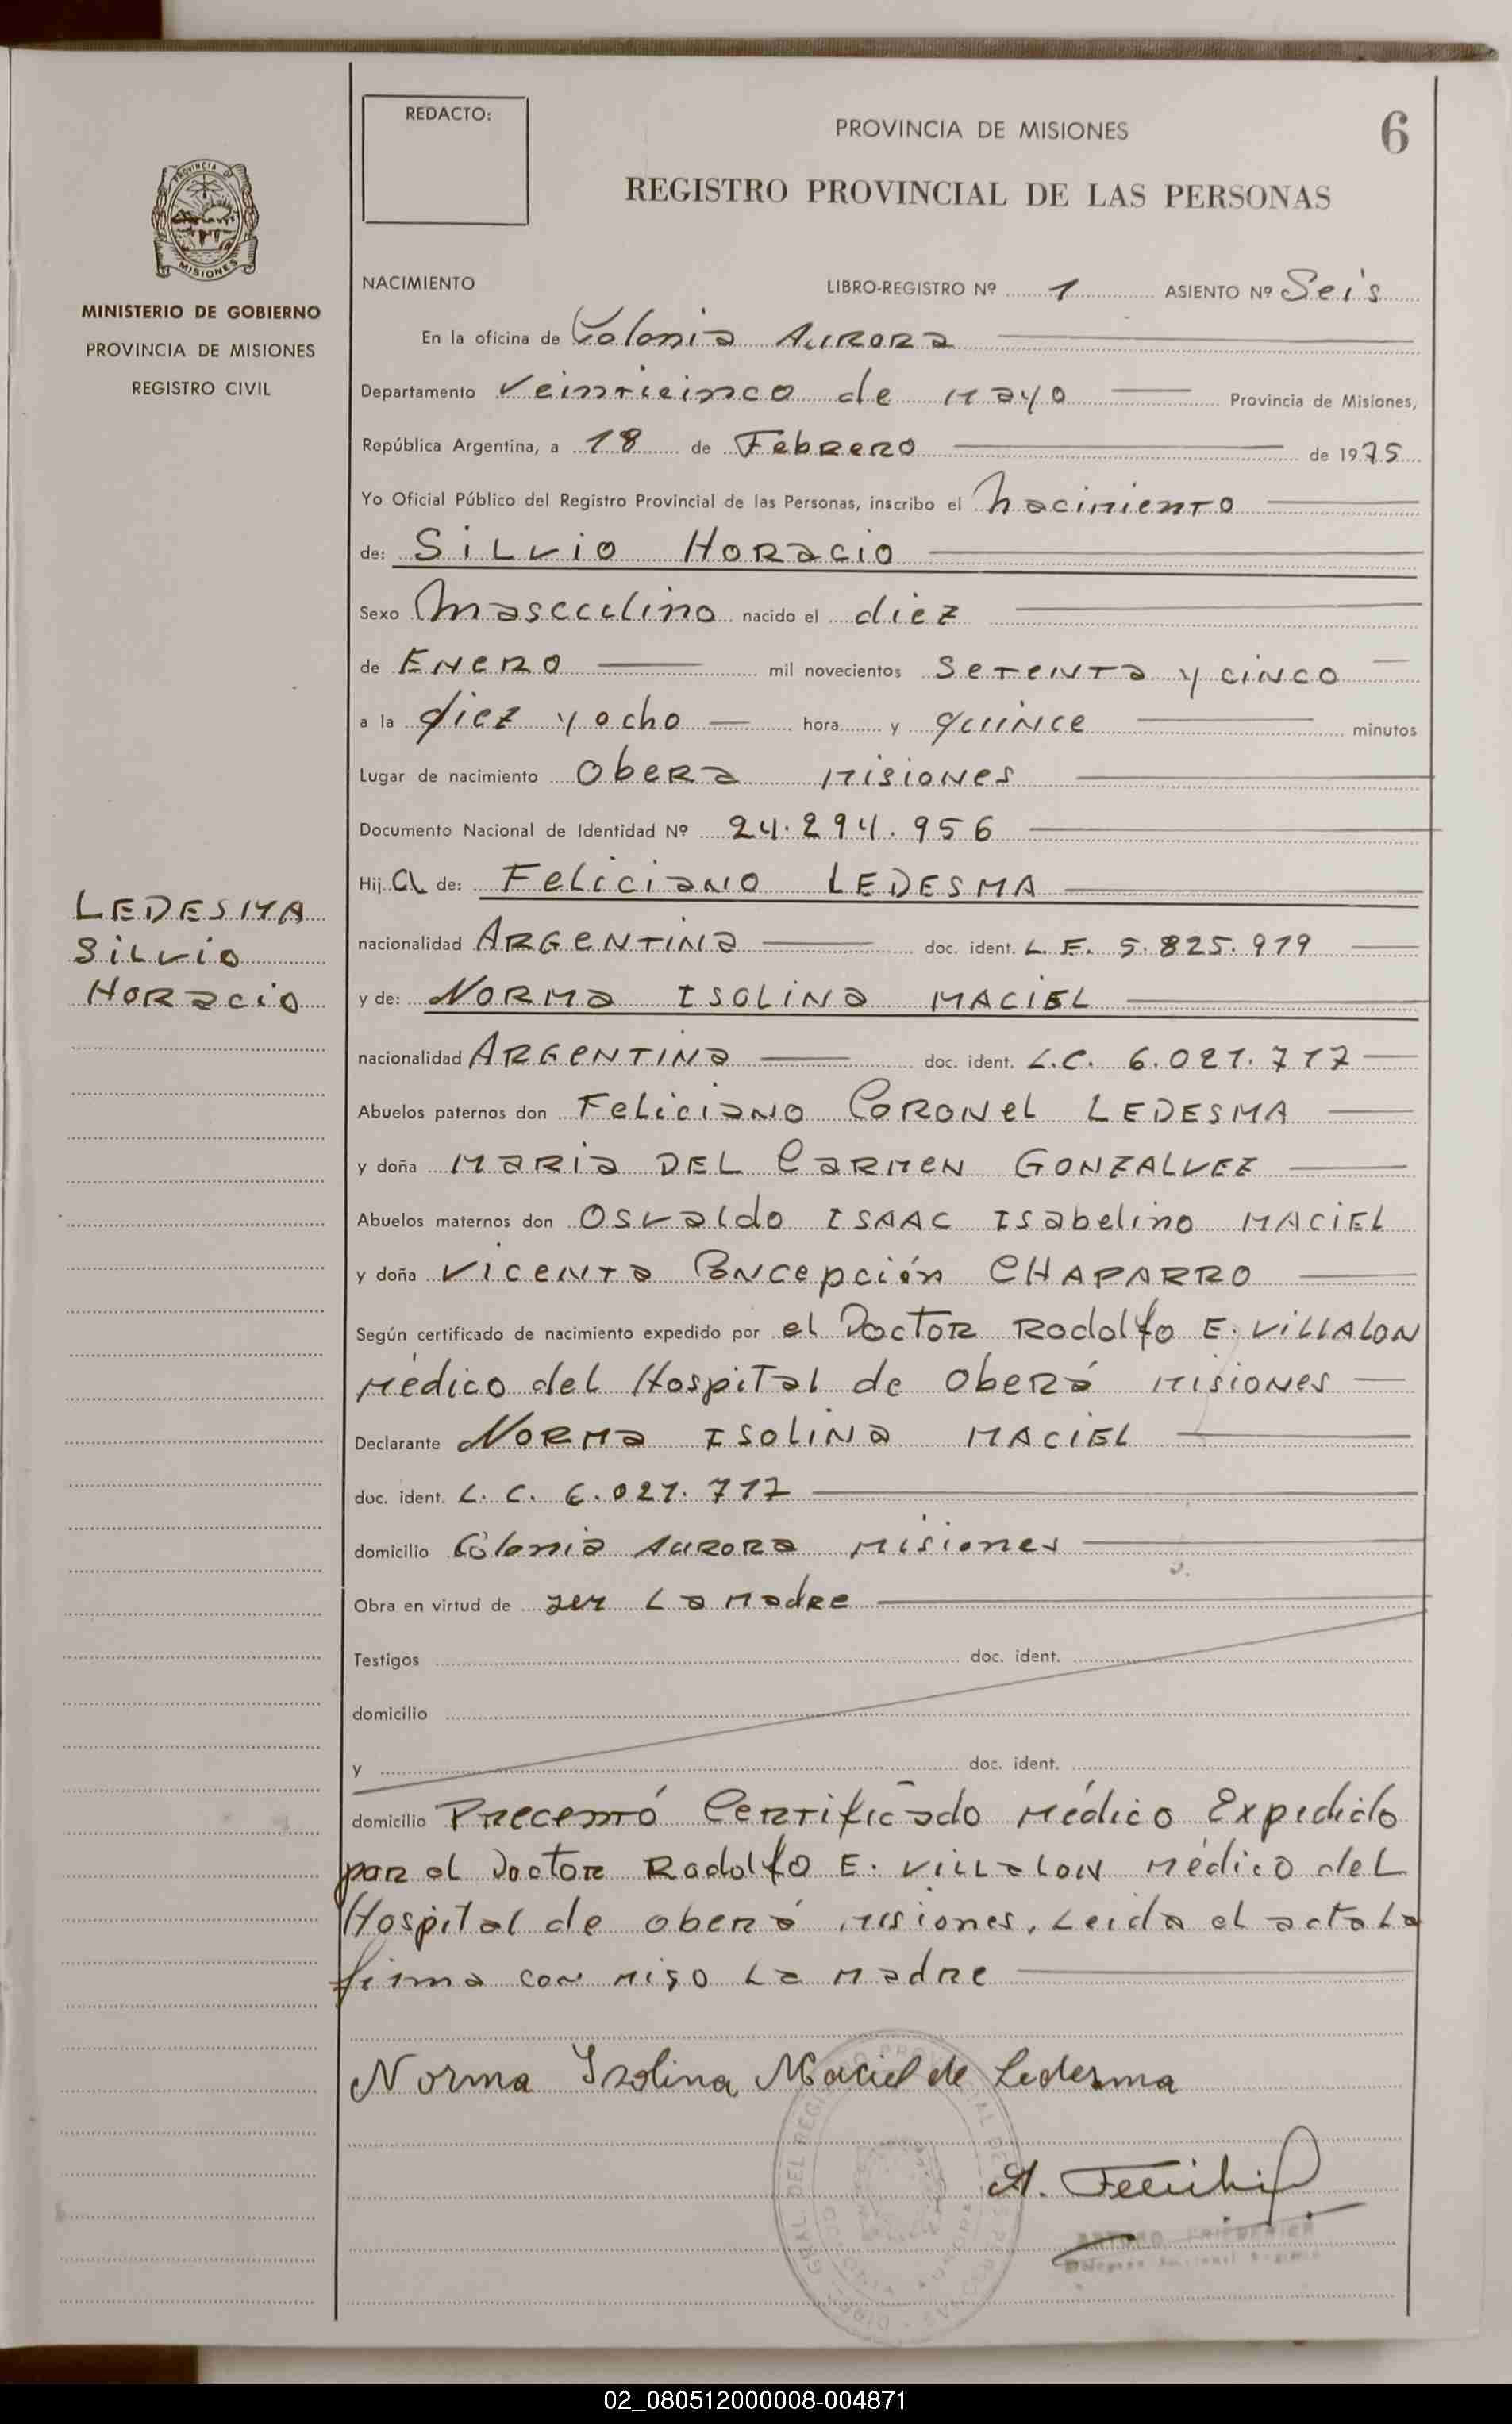 REDACTO:
PROVINCIA DE MISIONES
6
REGISTRO PROVINCIAL DE LAS PERSONAS
PROVINCIA DE
MISIONES
MINISTERIO DE GOBIERNO
PROVINCIA DE MISIONES
REGISTRO CIVIL
NACIMIENTO LIBRO-REGISTRO Nº 1 ASIENTO Nº Seis
En la oficina de Colonia AURORA
Departamento Veinticinco de Mayo Provincia de Misiones,
República Argentina, a 18 de Febrero de 1975
Yo Oficial Público del Registro Provincial de las Personas, inscribo el Nacimiento
de: SILVIO HORacio
Sexo Masculino nacido el diez
de ENERO mil novecientos SETENTA y CINCO
a la diez y ocho hora y quince minutos
Lugar de nacimiento Obera Misiones
Documento Nacional de Identidad Nº 24.294.956
Hij o de: Feliciano LEDESMA
LEDESMA
Silvio
HORacio
nacionalidad ARGENTINA doc. ident. L.E. 5.825.979
y de: NORMA ISOLINA MACIEL
nacionalidad ARGENTINA doc. ident. L.C. 6.021.717
Abuelos paternos don Feliciano CORONEL LEDESMA
y doña MARIA DEL CARMEN GONZALVEZ
Abuelos maternos don Osvaldo ISAAC Isabelino MACIEL
y doña VICENTA Concepción CHAPARRO
Según certificado de nacimiento expedido por el Doctor Rodolfo E. VILLALON
Médico del Hospital de Oberá Misiones
Declarante NORMA ISOLINA MACIEL
doc. ident. L.C. 6.021.717
domicilio Colonia AURORA Misiones
Obra en virtud de ser La Madre
Testigos doc. ident.
domicilio
y doc. ident.
domicilio Precentó Certificado Médico Expedido
por el Doctor Rodolfo E. VILLALON Médico del
Hospital de Oberá Misiones, Leida el acta La
firma con migo La Madre
Norma Isolina Maciel de Ledesma
A.
02_080512000008-004871